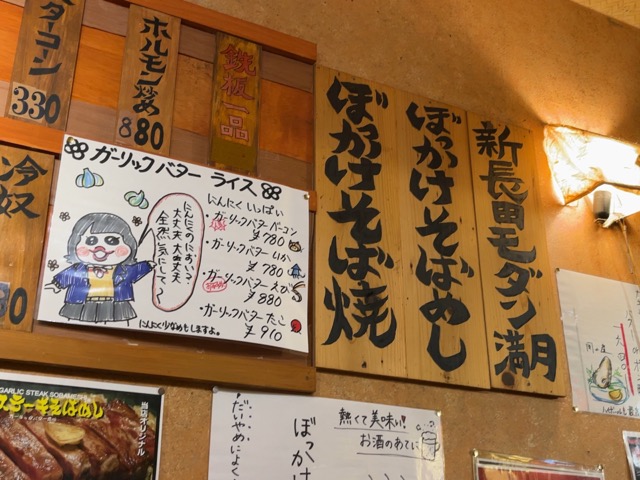 ターコン
330
ホルモン炒め
880
鉄板一品
冷奴
ぼっかけそば焼
ぼっかけそばめし
新長田モダン満月
ガーリックバター ライス
にんにく いっぱい
・ガーリックバターベーコン
¥780
・ガーリックバター いか
¥780
・ガーリックバター えび
¥880
・ガーリックバター たこ
¥910
にんにくのにおい?
大丈夫 大丈夫
にんにく少なめもしますよ。
GARLIC STEAK SOBAMESHI
ステーキそばめし
当店オリジナル
熱くて美味い!
お酒のあてに
だいやめによく
ぼっかけ